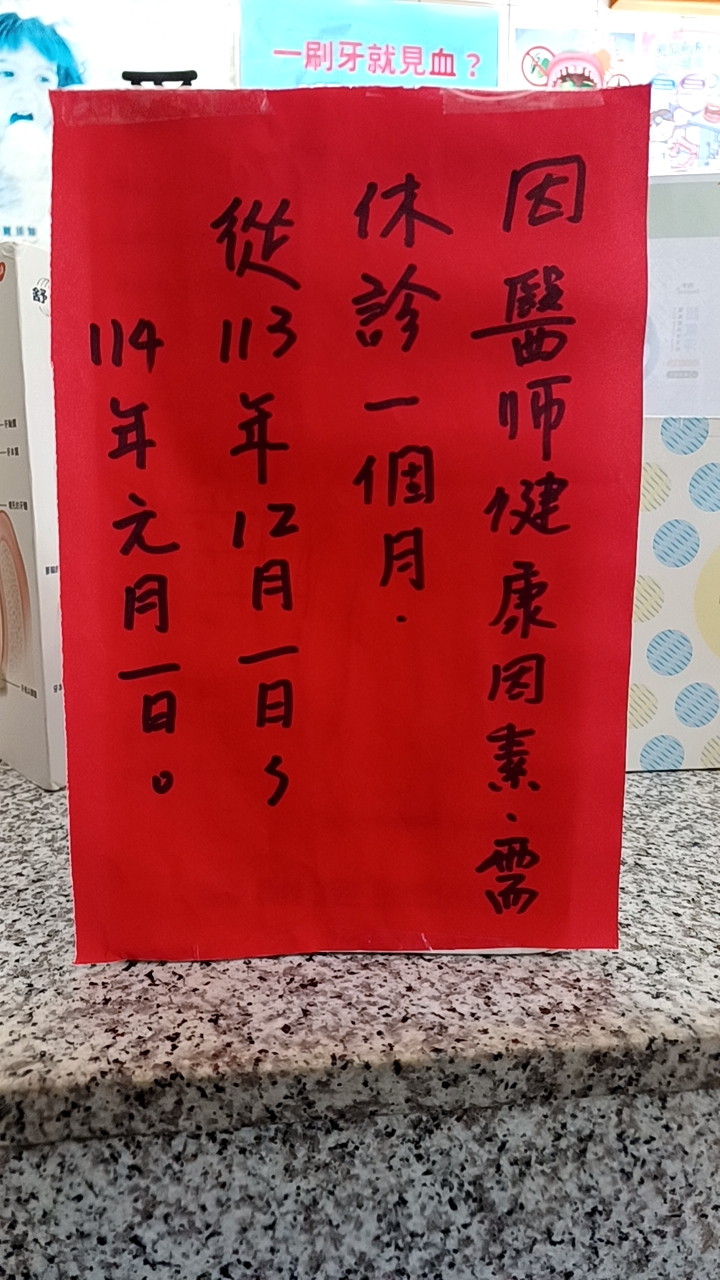 一刷牙就見血？
因醫師健康因素．需
休診一個月．
從113年12月一日~
114年元月一日。
舒